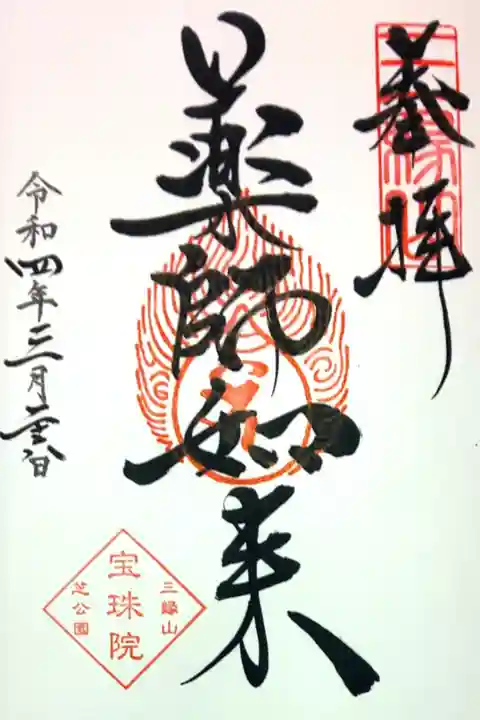 奉拝
三縁山
薬師如来
令和四年三月
三縁山
宝珠院
芝公園